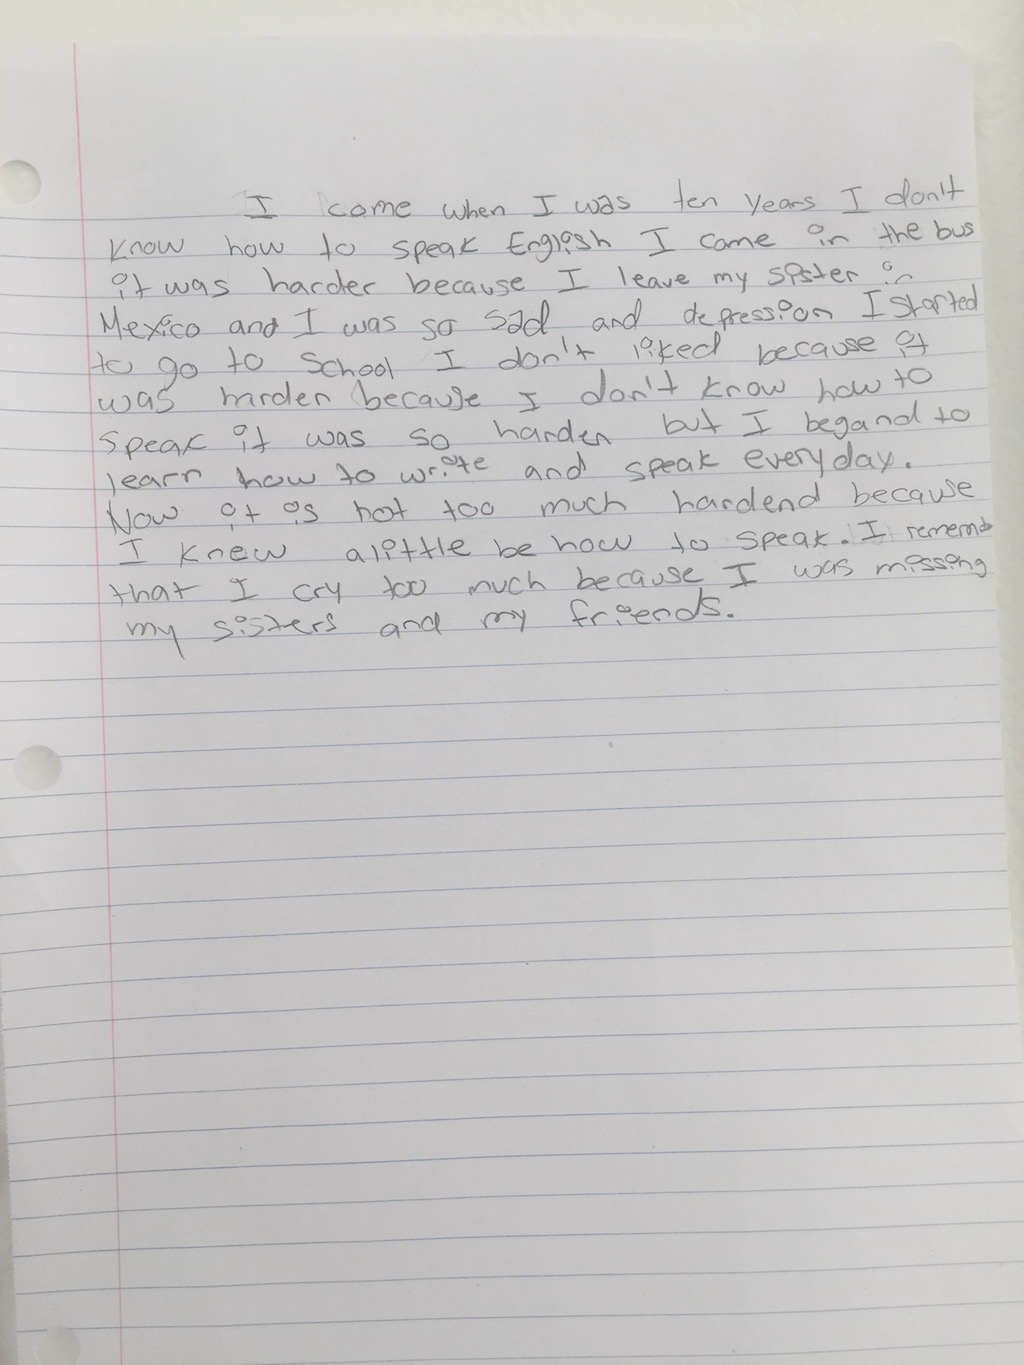 I come when I was ten years I don't
know how to speak English I came in the bus
it was harder because I leave my sister in
Mexico and I was so sad and depression I started
to go to School I don't liked because it
was harder because I don't know how to
speak it was so harder but I begand to
learn how to write and speak everyday.
Now it is not too much hardend because
I knew alittle be how to speak. I rememb
that I cry too much because I was missing
my sisters and my friends.